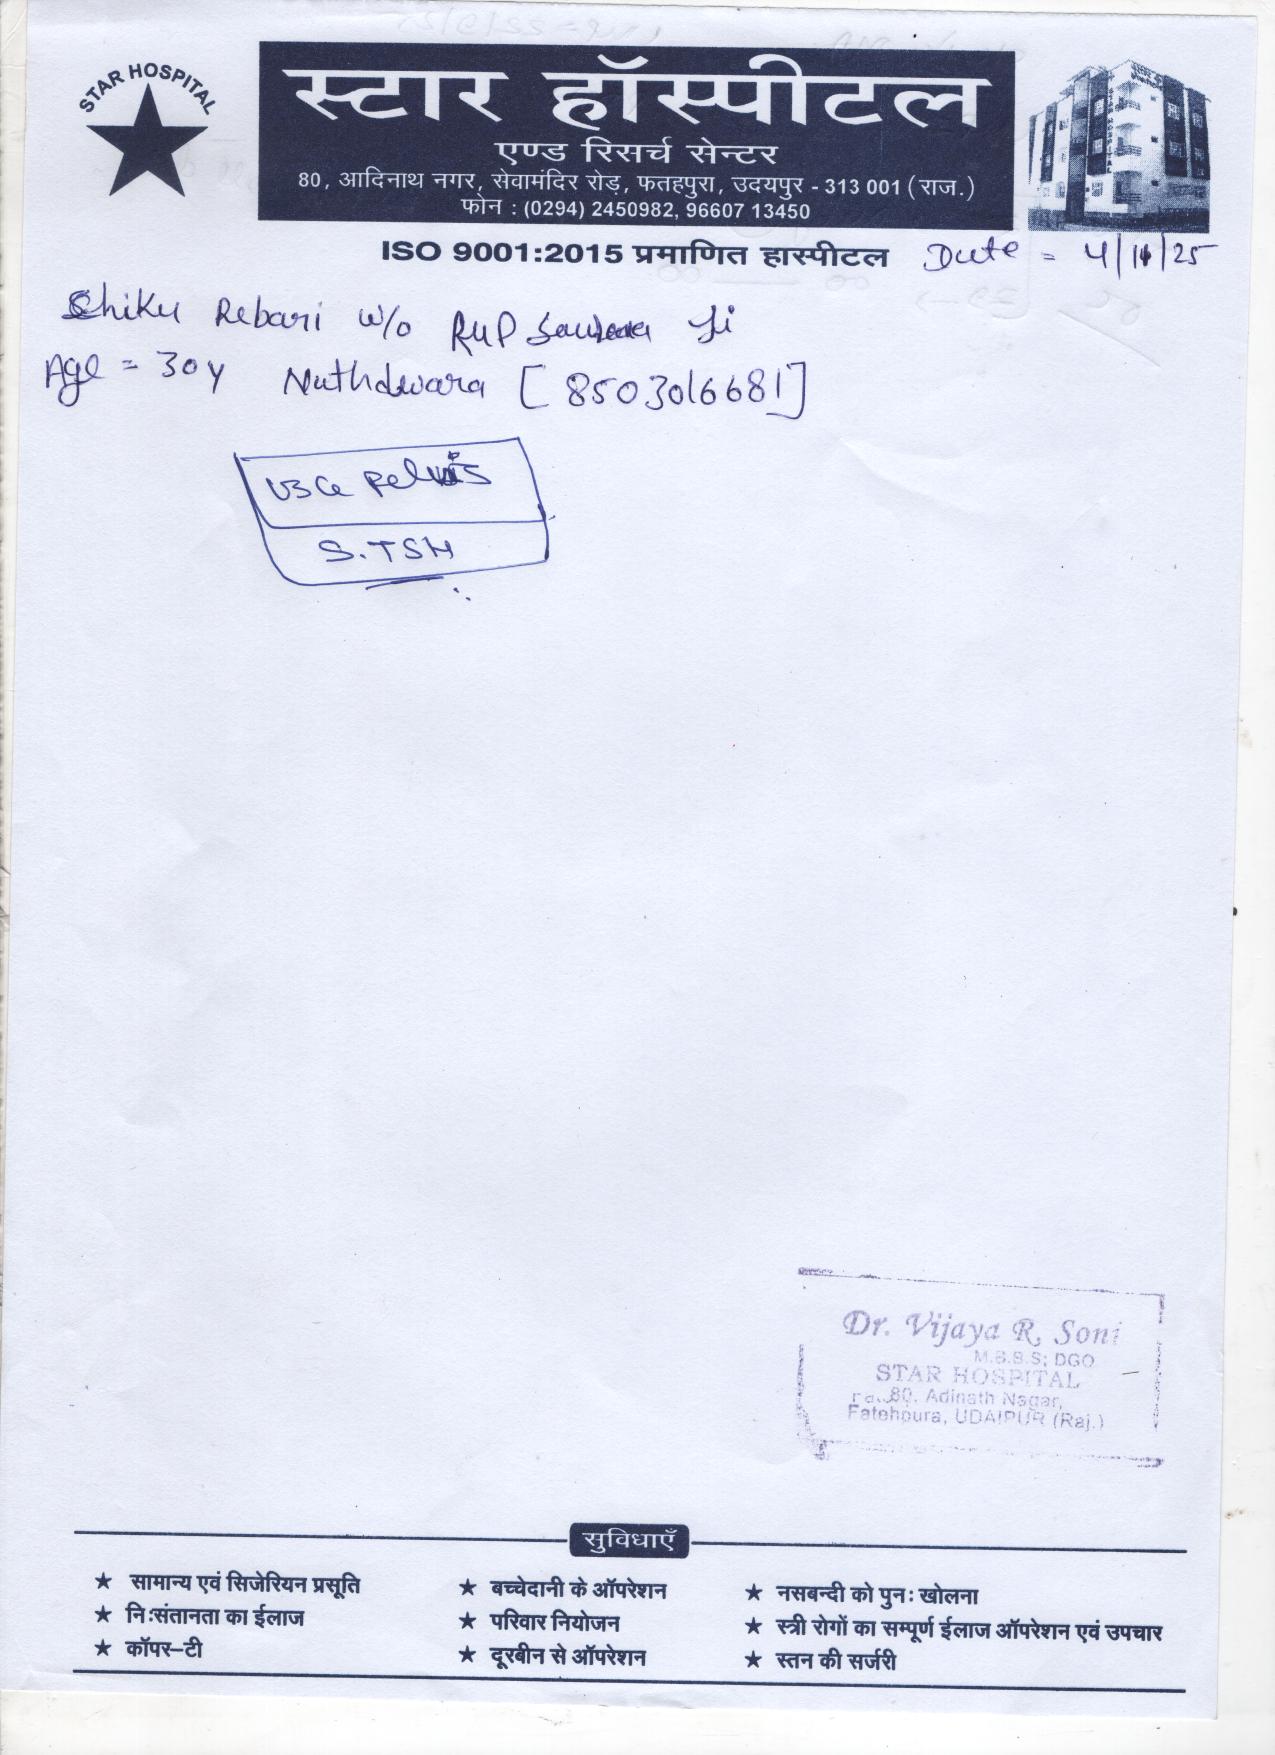 STAR HOSPITAL
स्टार हॉस्पीटल
एण्ड रिसर्च सेन्टर
80, आदिनाथ नगर, सेवामंदिर रोड़, फतहपुरा, उदयपुर - 313 001 (राज.)
फोन : (0294) 2450982, 96607 13450
ISO 9001:2015 प्रमाणित हास्पीटल Date = 4/11/25
Chiku Rebari w/o RUP ji
Age = 30y Nathdwara [8503016681]
USG Pelvis
S.TSH
Dr. Vijaya R. Soni
M.B.B.S; DGO
STAR HOSPITAL
80, Adinath Nagar,
Fatehpura, UDAIPUR (Raj.)
सुविधाएँ
★ सामान्य एवं सिजेरियन प्रसूति ★ बच्चेदानी के ऑपरेशन ★ नसबन्दी को पुनः खोलना
★ निःसंतानता का ईलाज ★ परिवार नियोजन ★ स्त्री रोगों का सम्पूर्ण ईलाज ऑपरेशन एवं उपचार
★ कॉपर–टी ★ दूरबीन से ऑपरेशन ★ स्तन की सर्जरी